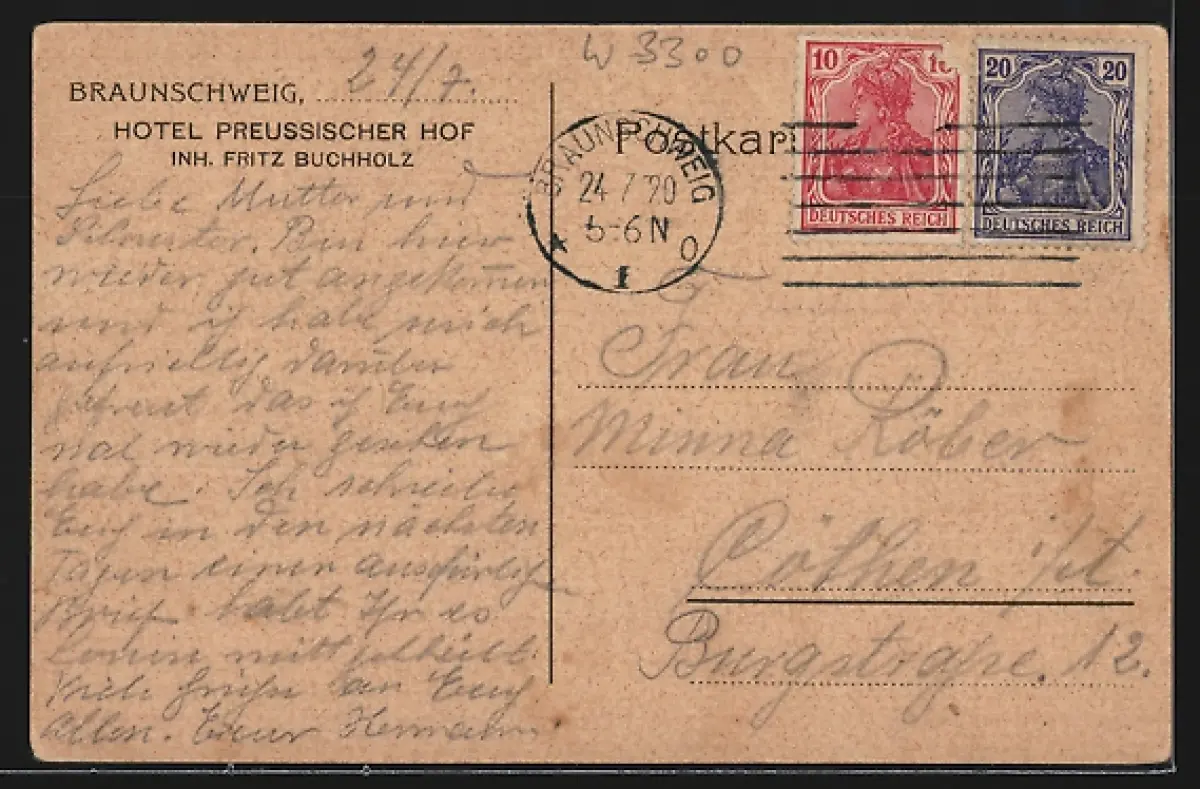 W 3300
BRAUNSCHWEIG, 24/7.
HOTEL PREUSSISCHER HOF
INH. FRITZ BUCHHOLZ
Liebe Mutter und
Bin hier
wieder gut angekommen
und ich habe mich
aufrichtig darüber
gefreut das ich Euch
mal wieder gesehen
habe. Ich schreibe
Euch in den nächsten
Tagen einen
Brief habt Ihr es
Viele Grüße an Euch
Allen. Euer Hermann
Postkart
BRAUNSCHWEIG
24 7 20
5-6 N
1
10 10
DEUTSCHES REICH
20 20
DEUTSCHES REICH
Frau
Minna Röber
Cöthen i/A.
Burgstraße. 12.